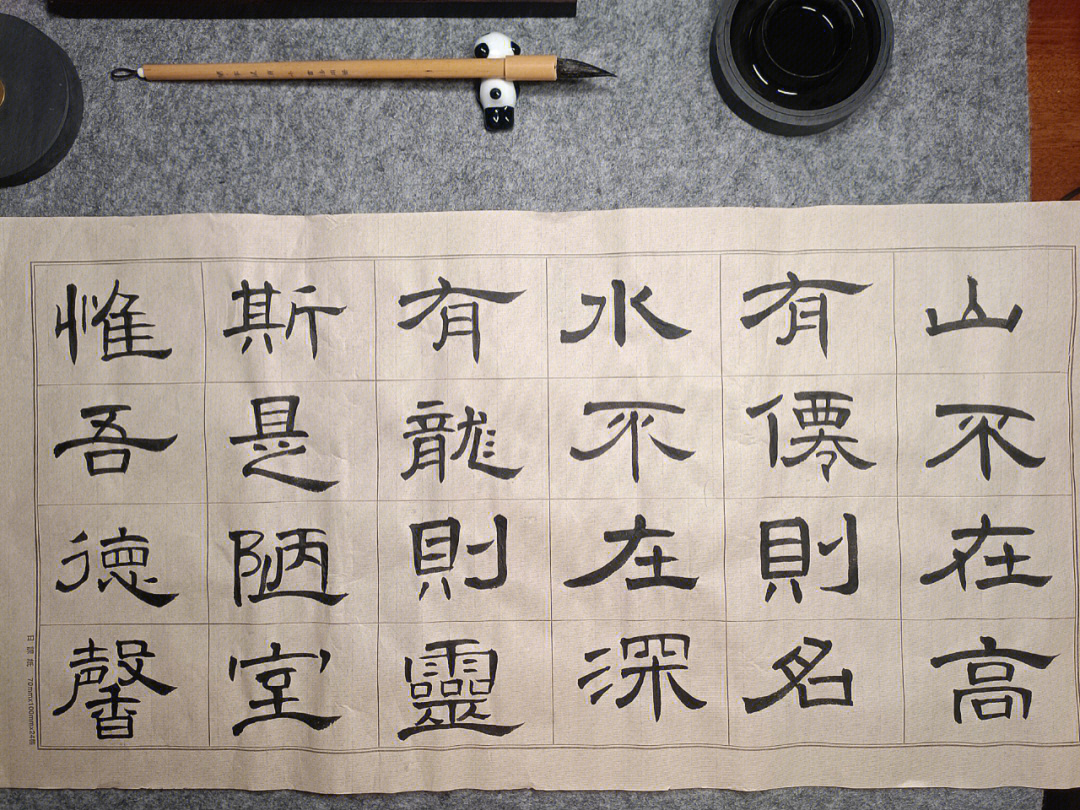 山不在高
有僊則名
水不在深
有龍則靈
斯是陋室
惟吾德馨
70mm×100mm×24格